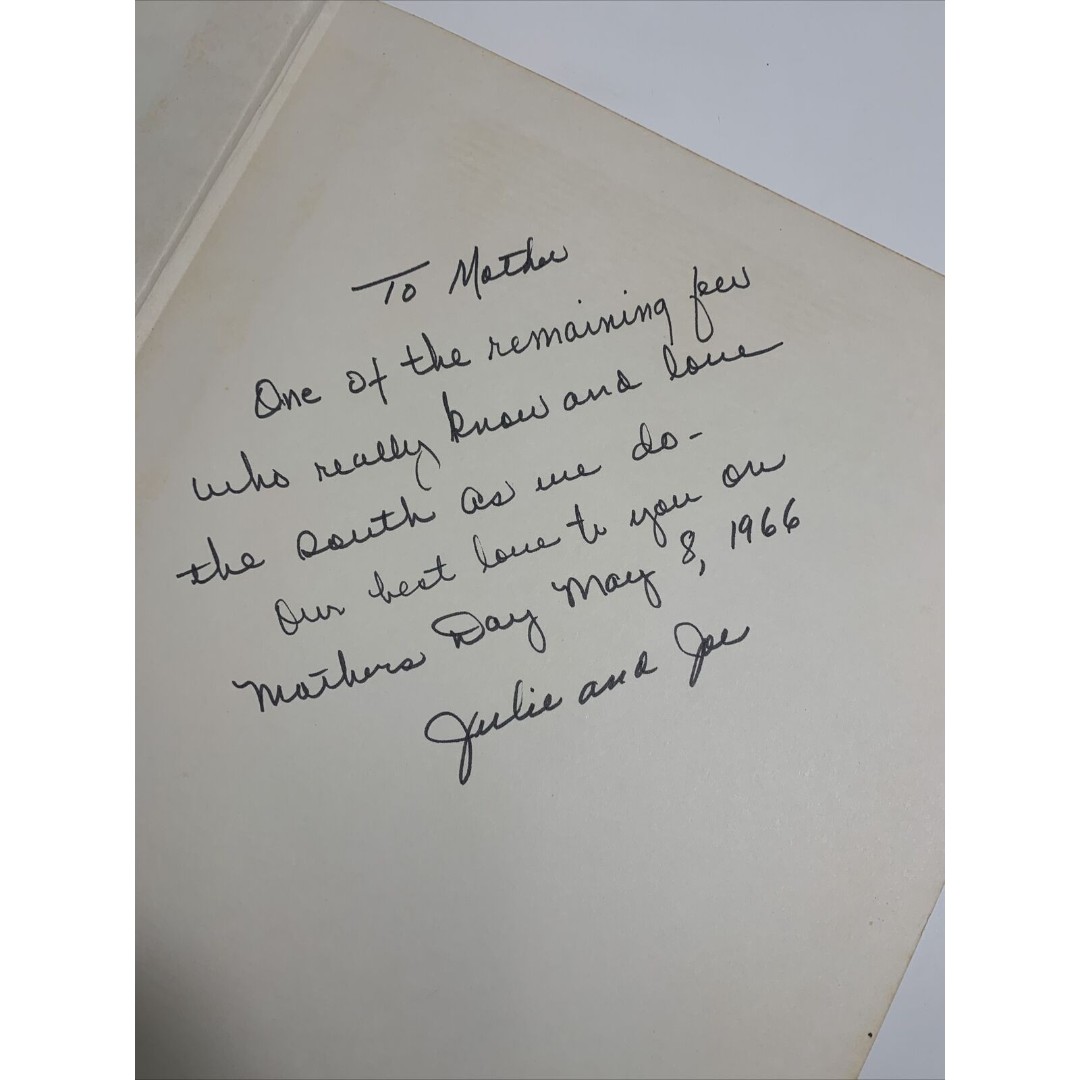 To Mother
One of the remaining few
who really know and love
the south as we do-
Our best love to you on
Mothers Day May 8, 1966
Julie and Joe